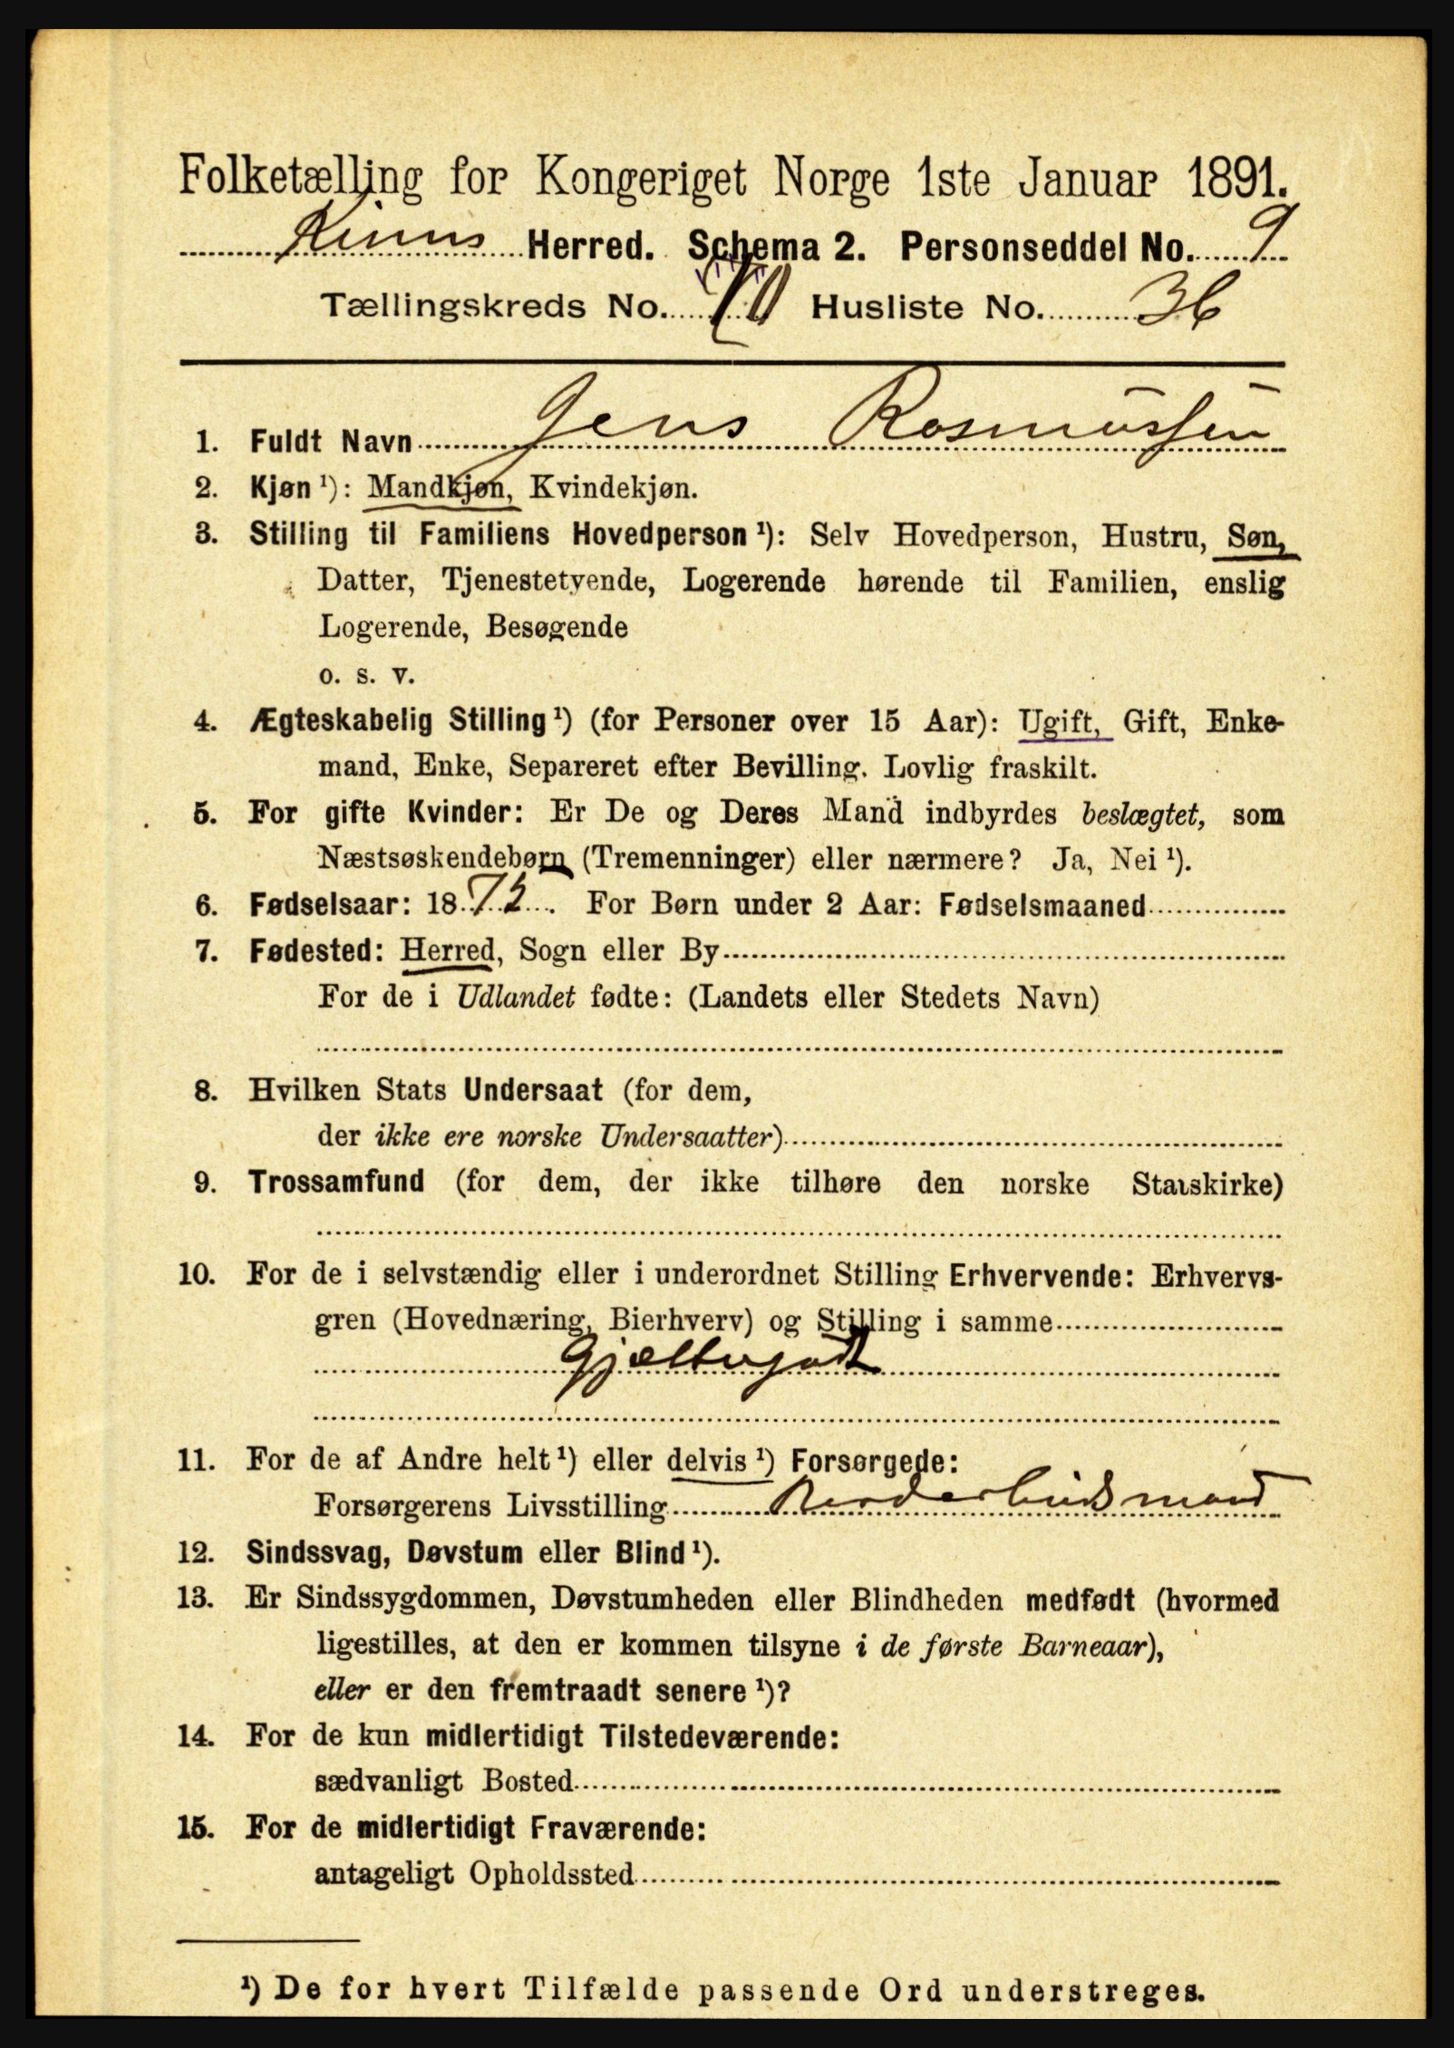 Folketælling for Kongeriget Norge 1ste Januar 1891.
Kinns Herred. Schema 2. Personseddel No. 9
Tællingskreds No. 10 Husliste No. 36
1. Fuldt Navn Jens Rasmussen
2. Kjøn ¹): Mandkjøn, Kvindekjøn.
3. Stilling til Familiens Hovedperson ¹): Selv Hovedperson, Hustru, Søn,
Datter, Tjenestetyende, Logerende hørende til Familien, enslig
Logerende, Besøgende
o. s. v.
4. Ægteskabelig Stilling ¹) (for Personer over 15 Aar): Ugift, Gift, Enke-
mand, Enke, Separeret efter Bevilling. Lovlig fraskilt.
5. For gifte Kvinder: Er De og Deres Mand indbyrdes beslægtet, som
Næstsøskendebørn (Tremenninger) eller nærmere? Ja, Nei ¹).
6. Fødselsaar: 18 72. For Børn under 2 Aar: Fødselsmaaned
7. Fødested: Herred, Sogn eller By
For de i Udlandet fødte: (Landets eller Stedets Navn)
8. Hvilken Stats Undersaat (for dem,
der ikke ere norske Undersaatter)
9. Trossamfund (for dem, der ikke tilhøre den norske Statskirke)
10. For de i selvstændig eller i underordnet Stilling Erhvervende: Erhvervs-
gren (Hovednæring, Bierhverv) og Stilling i samme
11. For de af Andre helt ¹) eller delvis ¹) Forsørgede:
Forsørgerens Livsstilling
12. Sindssvag, Døvstum eller Blind ¹).
13. Er Sindssygdommen, Døvstumheden eller Blindheden medfødt (hvormed
ligestilles, at den er kommen tilsyne i de første Barneaar),
eller er den fremtraadt senere ¹)?
14. For de kun midlertidigt Tilstedeværende:
sædvanligt Bosted
15. For de midlertidigt Fraværende:
antageligt Opholdssted
¹) De for hvert Tilfælde passende Ord understreges.